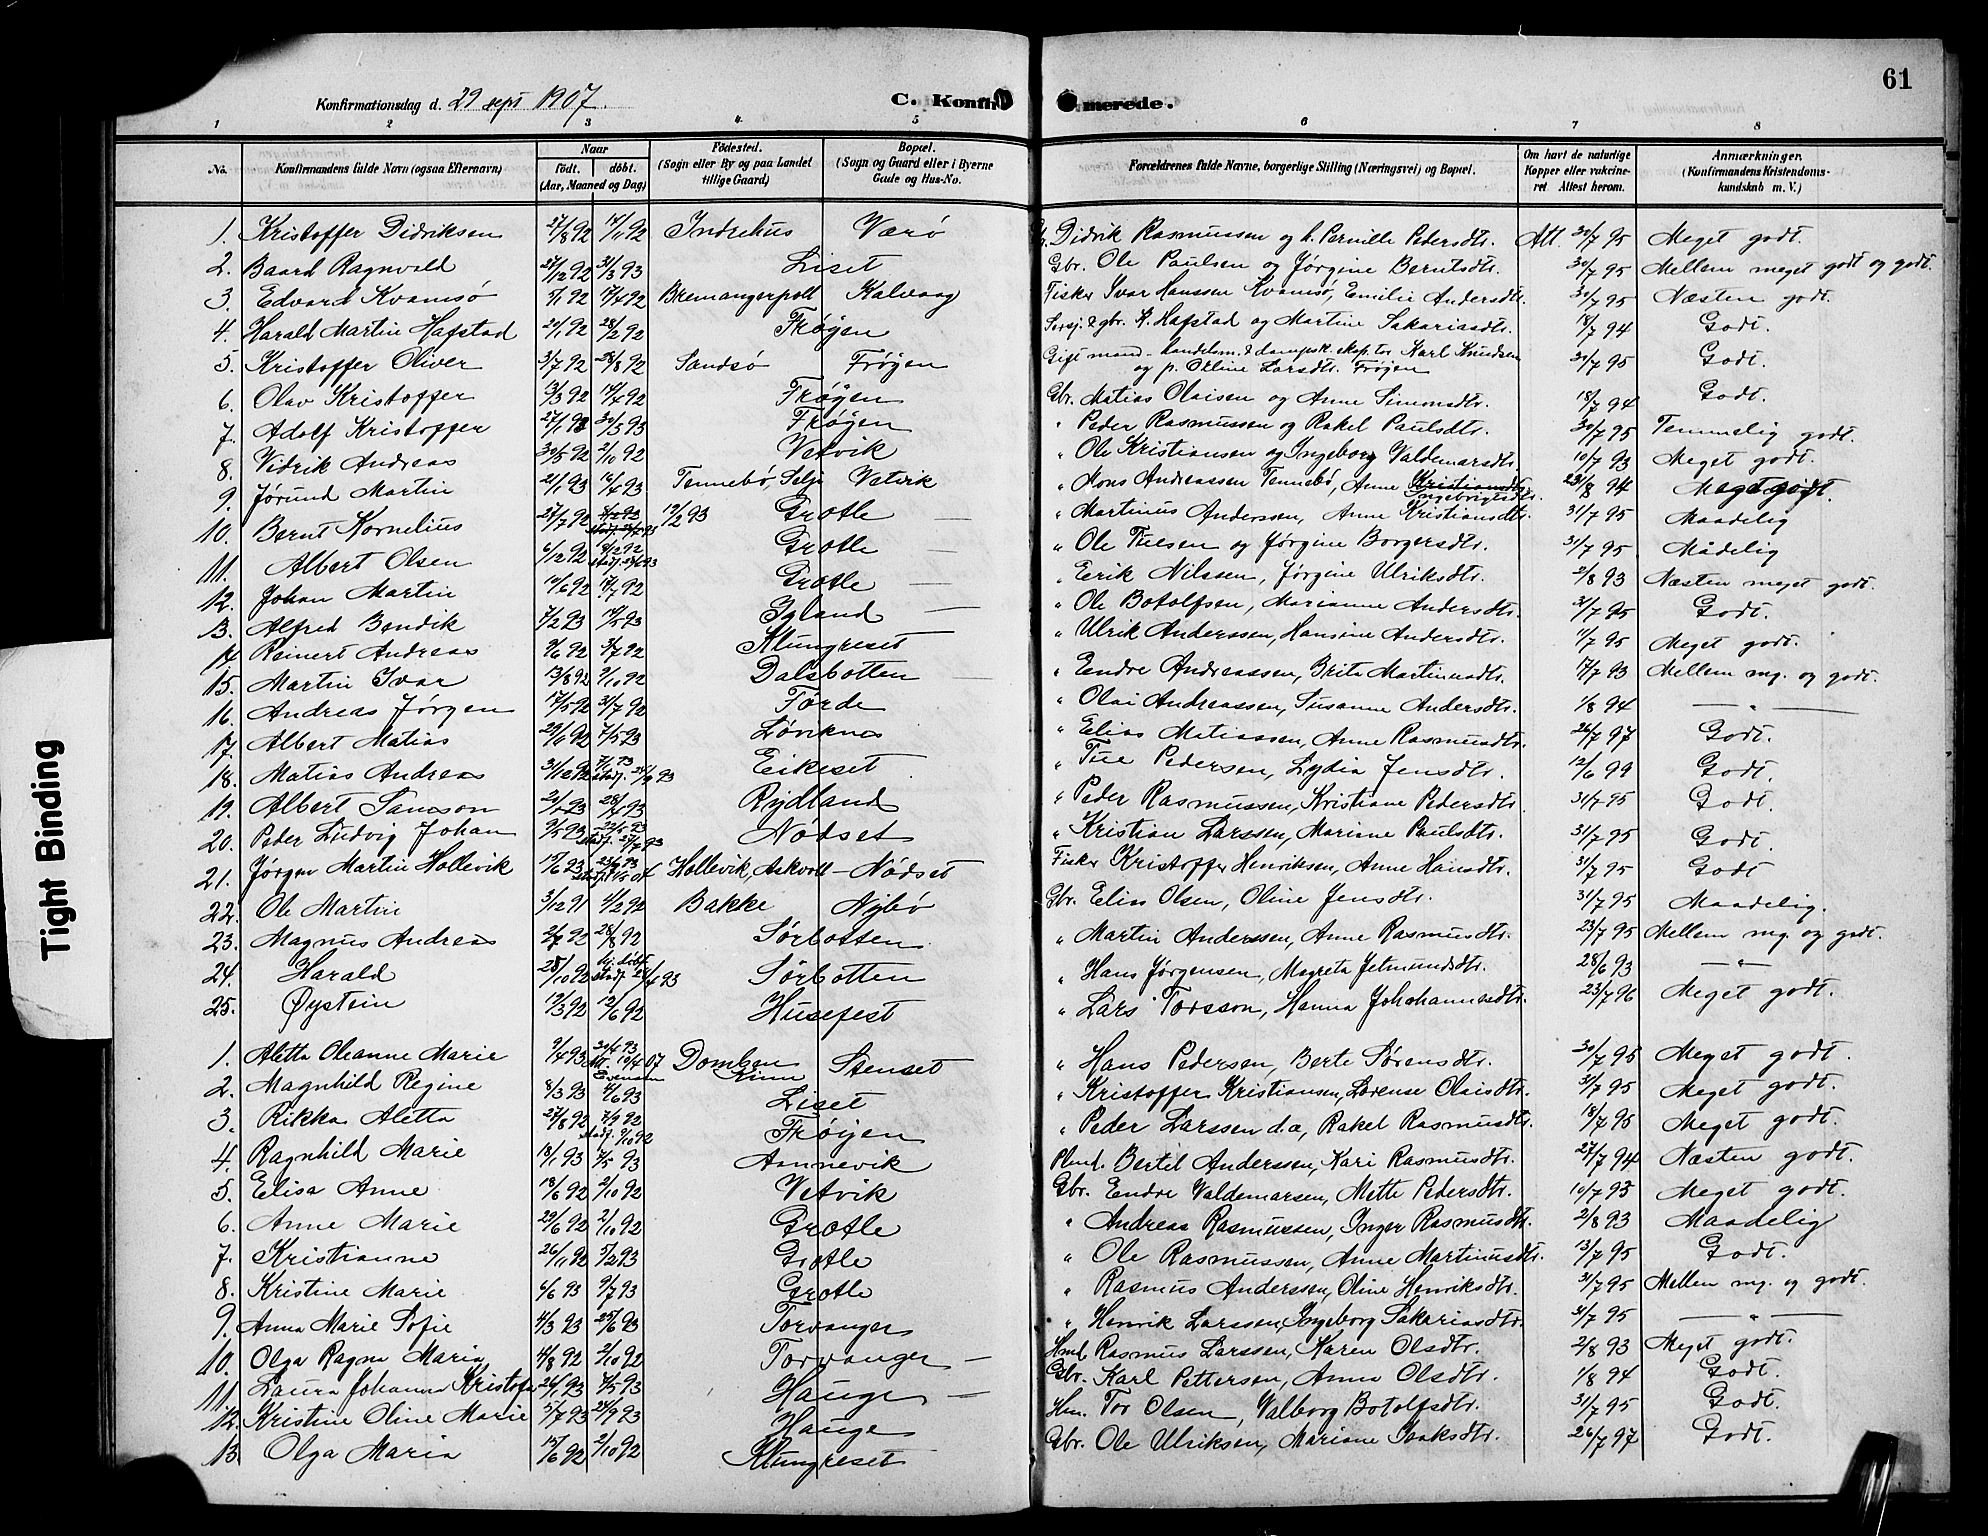 61
Konfirmationsdag d. 29 sept 1907.
C. Konfirmerede.
1 2 3 4 5 6 7 8
No. Konfirmandens fulde Navn (ogsaa Efternavn) Naar født. døbt. (Aar, Maaned og Dag) Fødested. (Sogn eller By og paa Landet tillige Gaard) Bopæl. (Sogn og Gaard eller i Byerne Gade og Hus-No. Forældrenes fulde Navne, borgerlige Stilling (Næringsvei) og Bopæl. Om havt de naturlige Kopper eller vakcineret. Attest herom. Anmærkninger. (Konfirmandens Kristendomskundskab m. V.)
1. Kristoffer Didriksen 27/8 92 14/11 92 Indrehus Værø Didrik Rasmussen og h. Pernille Pedersdtr. Att. 30/7 95 Meget godt.
2. Baard Ragnvald 27/12 92 31/3 93 Liset Gbr. Ole Paulsen og Jørgine Berntsdtr. 30/7 95 Mellem meget godt og godt.
3. Edvard Kvamsø 5/1 92 17/4 92 Bremangerpoll Kalvaag Fisker Ivar Hanssen Kvamsø, Emilie Andersdtr. 30/7 95 Næsten godt.
4. Harald Martin Hafstad 20/1 92 28/2 92 Frøyen gbr. K. Hafstad og Martine Sakariasdtr. 18/7 94 Godt.
5. Kristoffer Oliver 3/7 92 28/8 92 Sandsø Frøyen Gift mand - handelsm. & dampsk. eksp. Karl Knudsen og p. Oline Larsdtr. Frøyen 30/7 95 Godt.
6. Olav Kristoffer 13/3 92 14/6 92 Frøyen Gbr. Matias Olaisen og Anne Simonsdtr. 18/7 94 Godt.
7. Adolf Kristoffer 27/1 93 30/5 93 Frøyen " Peder Rasmussen og Rakel Paulsdtr. 30/7 95 Temmelig godt.
8. Vidrik Andreas 30/5 92 2/10 92 Vetvik " Ole Kristiansen og Ingeborg Valdemarsdtr. 10/7 93 Meget godt.
9. Jørund Martin 21/1 93 16/4 93 Tennebø, Selje Vetvik " Mons Andreassen Tennebø, Anne Kristiansdtr. Ingebrigtsdtr. 94 Meget godt.
10. Bernt Kornelius 27/7 92 12/2 93 Grotle " Martinus Anderssen, Anne Kristiansdtr. 31/7 95 Maadelig
11. Albert Olsen 6/12 92 8/12 92 Grotle " Ole Tuesen og Jørgine Borgersdtr. 31/7 95 Mådelig
12. Johan Martin 10/6 92 17/7 92 Grotle " Eerik Nilssen, Jørgine Ulriksdtr. 2/8 93 Næsten meget godt.
13. Alfred Bendik 7/2 93 14/5 93 Igland " Ole Botolfsen, Marianne Andersdtr. 31/7 95 Godt.
14 Reinert Andreas 9/6 92 3/7 92 Klungreset " Ulrik Anderssen, Hansine Andersdtr. 11/7 95 Meget godt.
15. Martin Ivar 13/8 92 9/10 92 Dalsbotten " Endre Andreassen, Brita Martinusdtr. 17/7 93 Mellem mg. og godt.
16. Andreas Jørgen 17/5 92 31/7 92 Førde " Olai Andreassen, Susanne Andersdtr. 1/8 94 — " —
17. Albert Matias 29/11 92 7/5 93 Løviknes " Elias Matiassen, Anne Rasmusdtr. 26/7 97 Godt.
18. Matias Andreas 31/10 92 Eikeset " Tue Pedersen, Lydia Jensdtr. 12/6 99 Godt.
19. Albert Samson 93 Rydland " Peder Rasmussen, Kristiane Pedersdtr. 31/7 95 Godt.
20. Peder Ludvig Johan 9/5 93 22/5 93 Nødset " Kristian Larssen, Mariane Paulsdtr. 31/7 95 Godt.
21. Jørgen Martin Hollevik 15/6 93 23/6 93 Hollevik, Askvoll - Nødset Fisker Kristoffer Henriksen, Anne Hansdtr. 31/7 95 Godt
22. Ole Martin 3/12 91 4/2 92 Bakke Nybø Gbr. Elias Olsen, Oline Jensdtr. 31/7 95 Maadelig.
23. Magnus Andreas 2/7 92 28/8 92 Sørbotten " Martin Anderssen, Anne Rasmusdtr. 23/7 95 Mellem mg. og godt.
24. Harald 28/10 92 hj. døbt Sørbotten " Hans Jørgensen, Magreta Jetmundsdtr. 28/6 93 — " —
25. Øystein 19/3 92 12/6 92 Husefest " Lars Torsson, Hanna Johohannesdtr. 23/7 96 Meget godt.
1. Aletta Oleanne Marie 9/4 93 30/4 93 Att. 10/4 07 Dombæn Kinn Stenset " Hans Pedersen, Berte Sørensdtr. 30/7 95 Meget godt.
2. Magnhild Regine 8/3 93 4/6 93 Liset " Kristoffer Kristiansen, Lorense Olaisdtr. 31/7 95 Meget godt.
3. Rikka Aletta 27/8 92 7/9 92 9/10 92 Frøyen " Peder Larssen d.a, Rakel Rasmusdtr. 18/7 95 Meget godt.
4. Ragnhild Marie 18/1 93 7/5 93 Aannevik Plmd. Bertil Anderssen, Kari Rasmusdtr. 27/7 94 Næsten godt.
5. Elisa Anne 18/6 92 2/10 92 Vetvik Gbr. Endre Valdemarsen, Mette Pedersdtr. 10/7 93 Meget godt.
6. Anne Marie 29/6 92 2/10 92 Grotle " Andreas Rasmussen, Inger Rasmusdtr. 2/8 93 Maadelig
7. Kristianne 26/11 92 5/2 93 Grotle " Ole Rasmussen, Anne Martinusdtr. 13/7 95 Godt.
8. Kristine Marie 4/6 93 9/7 93 Grotle " Rasmus Anderssen, Oline Henriksdtr. 31/7 95 Mellem mg. og godt.
9. Anna Marie Sofie 4/3 93 25/6 93 Torvanger " Henrik Larssen, Ingeborg Sakariasdtr. 31/7 95 — " —
10. Olga Ragna Maria 4/8 92 2/10 92 Torvanger — Hmd. Rasmus Larssen, Karen Olsdtr. 2/8 93 Meget godt.
11. Laura Johanna Kristofa 26/1 93 7/5 93 Hauge — Gbr. Karl Pettersen, Anna Olsdtr. 1/8 94 Godt.
12. Kristine Oline Marie 5/7 93 24/9 93 Hauge Hm. Tor Olsen, Valborg Botolfsdtr. 31/7 95 Godt.
13 Olga Maria 15/6 92 2/10 92 Klungreset Gbr. Ole Ulriksen, Mariane Isaksdtr. 26/7 97 Godt.
Tight Binding